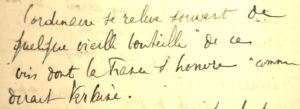 l'ordinaire se relève souvent de
quelque vieille bouteille "de ce
vin dont la France s'honore" comme
dirait Verlaine.